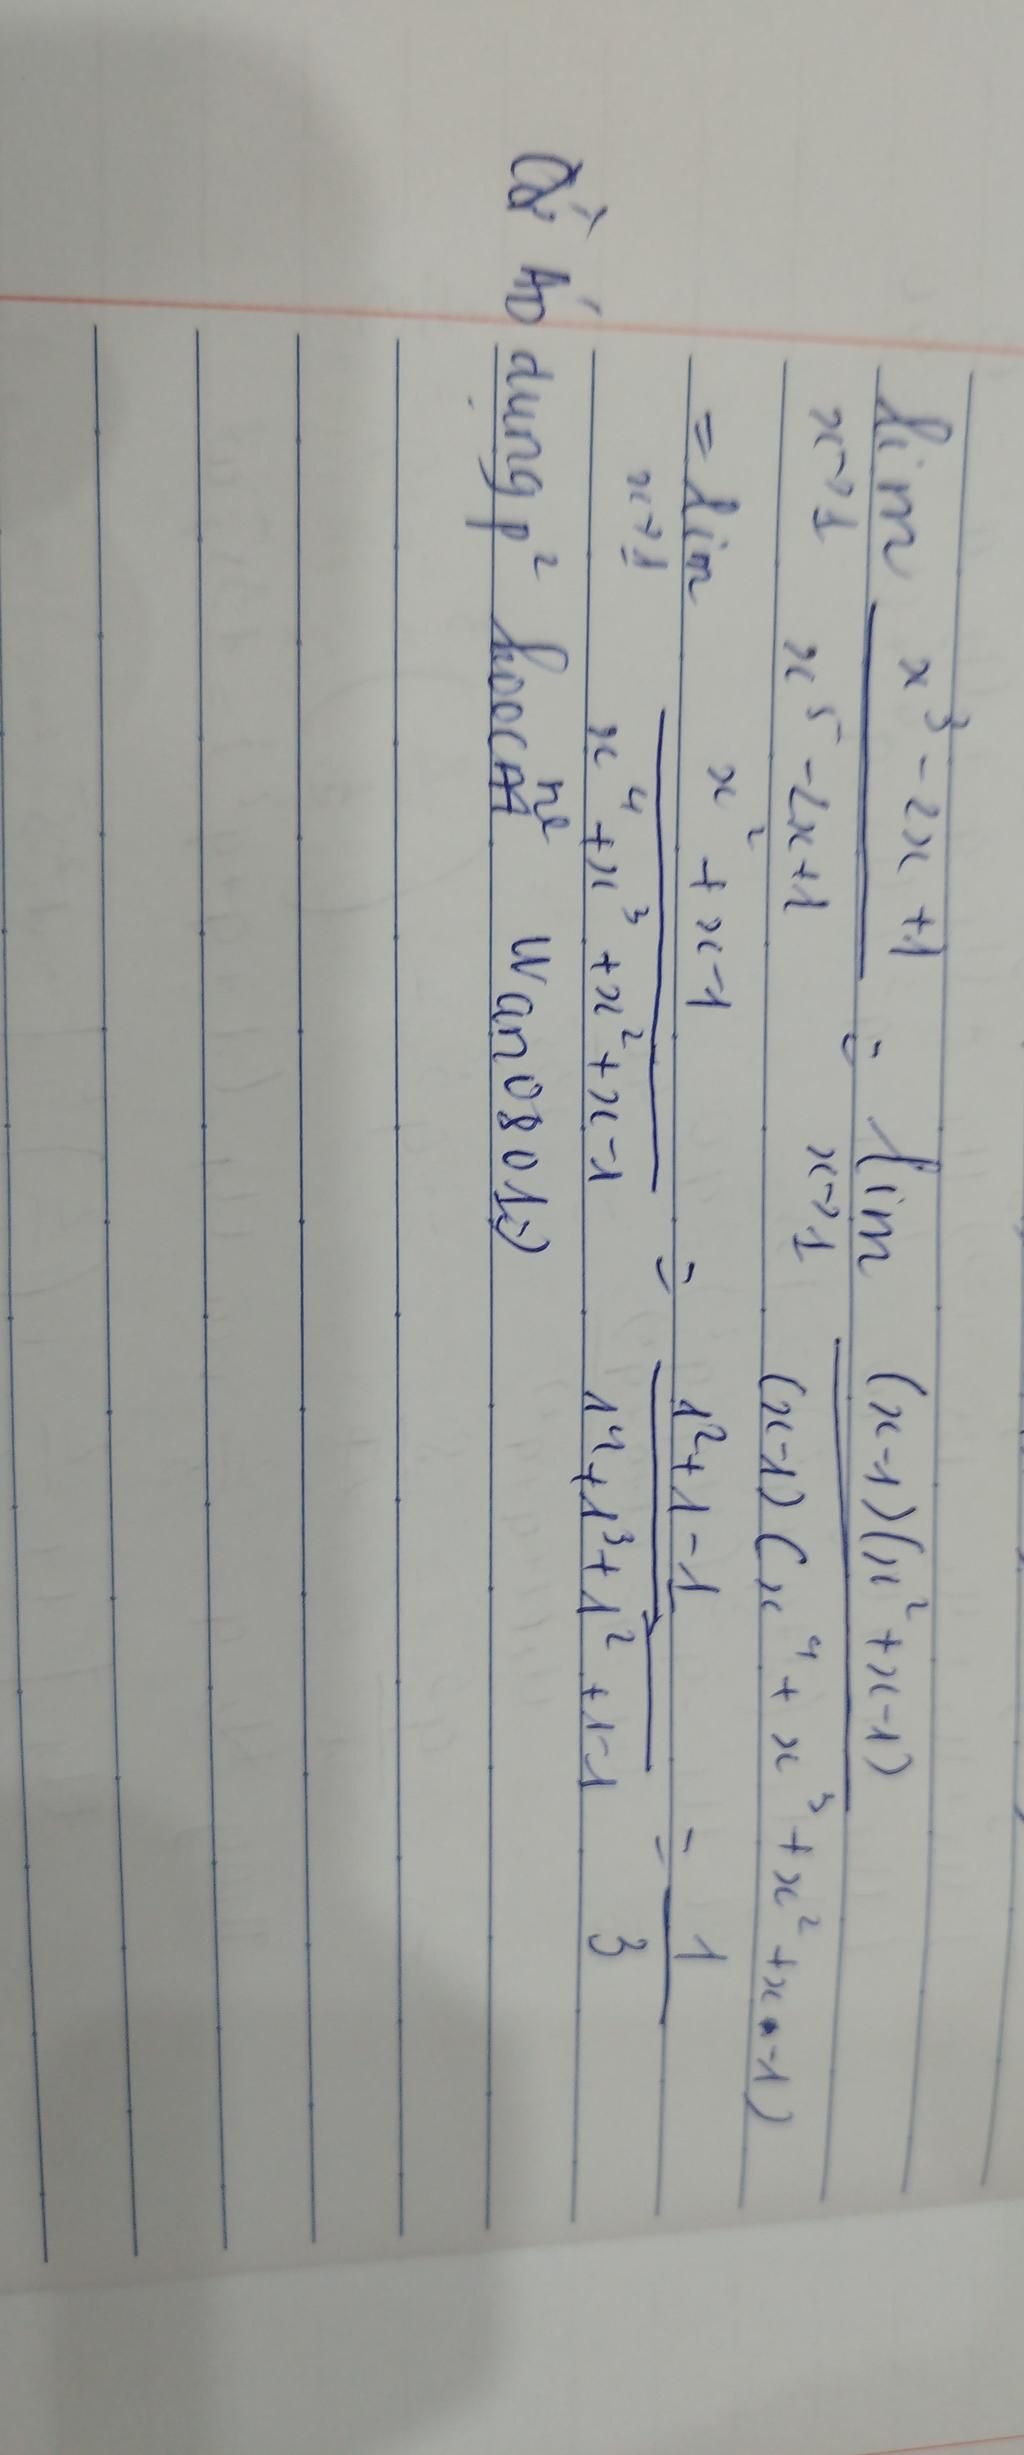 lim x→1 (x³ - 2x + 1)/(x⁵ - 2x + 1) = lim x→1 (x-1)(x² + x - 1)/(x-1)(x⁴ + x³ + x² + x - 1)
= lim x→1 (x² + x - 1)/(x⁴ + x³ + x² + x - 1) = (1² + 1 - 1)/(1⁴ + 1³ + 1² + 1 - 1) = 1/3
dụng p² hooc ne Wano801:)